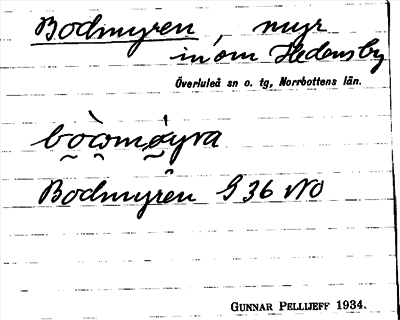 Bodmyren, myr
inom Hedensby
Överluleå sn o. tg, Norrbottens län.
Bodmyren G 36 NO
GUNNAR PELLIJEFF 1934.